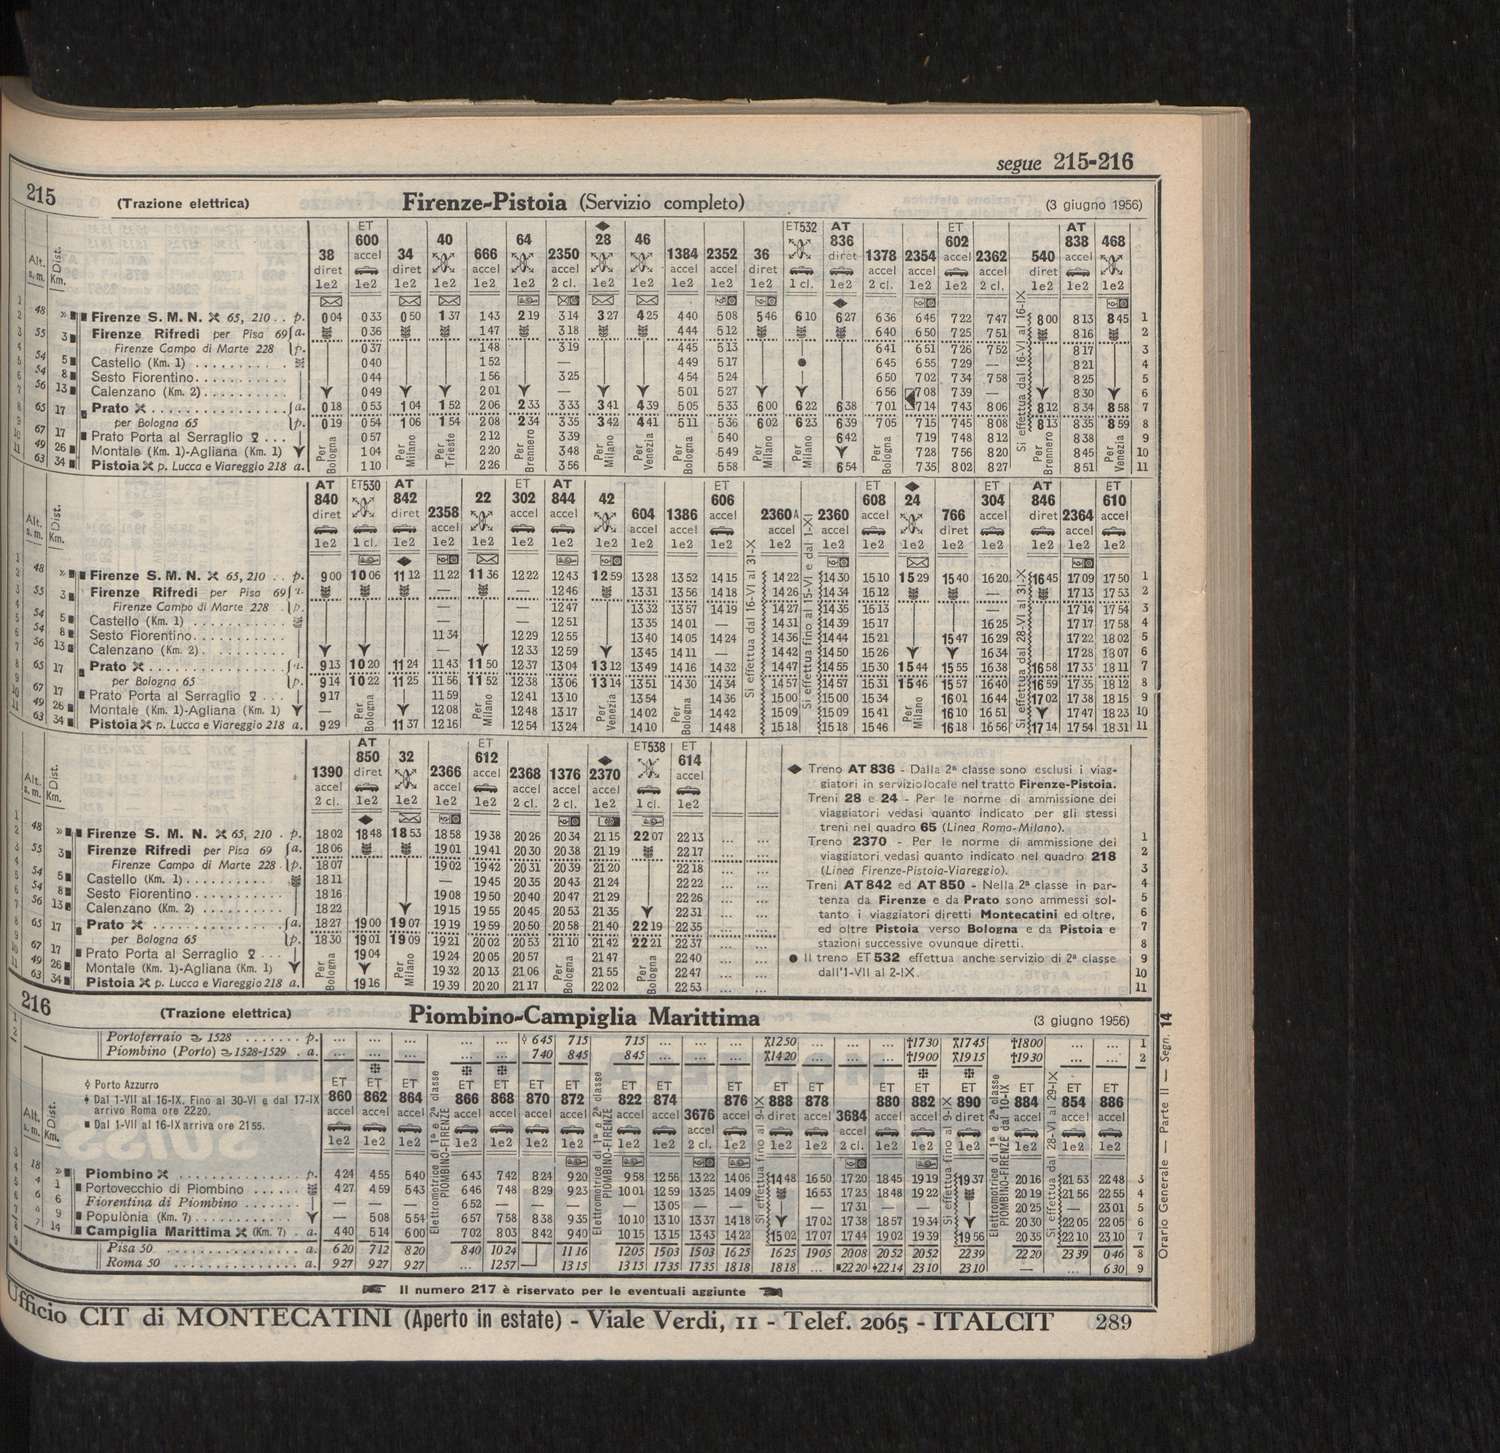 segue 215-216
215 (Trazione elettrica) Firenze-Pistoia (Servizio completo) (3 giugno 1956)
Alt. s. m. Dist. Km.
38 diret 1e2
ET 600 accel 1e2
34 diret 1e2
40 1e2
666 accel 1e2
64 1e2
2350 accel 2 cl.
28 1e2
46 1e2
1384 accel 1e2
2352 accel 1e2
36 1e2
ET532 1 cl.
AT 836 diret 1e2
1378 accel 2 cl.
2354 accel 1e2
ET 602 accel 1e2
2362 accel 2 cl.
540 diret 1e2
AT 838 accel 1e2
468 1e2
48 » Firenze S. M. N. 65, 210 . . p. 0 04 0 33 0 50 1 37 1 43 2 19 3 14 3 27 4 25 4 40 5 08 5 46 6 10 6 27 6 36 6 46 7 22 7 47 8 00 8 13 8 45 1
55 3 Firenze Rifredi per Pisa 69 a. 0 36 1 47 3 18 4 44 5 12 6 40 6 50 7 25 7 51 8 16 2
Firenze Campo di Marte 228 p. 0 37 1 48 3 19 4 45 5 13 6 41 6 51 7 26 7 52 8 17 3
54 5 Castello (Km. 1) 0 40 1 52 — 4 49 5 17 6 45 6 55 7 29 — 8 21 4
54 8 Sesto Fiorentino 0 44 1 56 3 25 4 54 5 24 6 50 7 02 7 34 7 58 8 25 5
56 13 Calenzano (Km. 2) 0 49 2 01 — 5 01 5 27 6 56 7 08 7 39 — 8 30 6
65 17 Prato a. 0 18 0 53 1 04 1 52 2 06 2 33 3 33 3 41 4 39 5 05 5 33 6 00 6 22 6 38 7 01 7 14 7 43 8 06 8 12 8 34 8 58 7
per Bologna 65 p. 0 19 0 54 1 06 1 54 2 08 2 34 3 35 3 42 4 41 5 11 5 36 6 02 6 23 6 39 7 05 7 15 7 45 8 08 8 13 8 35 8 59 8
67 17 Prato Porta al Serraglio 0 57 2 12 3 39 5 40 6 42 7 19 7 48 8 12 8 38 9
49 26 Montale (Km. 1)-Agliana (Km. 1) 1 04 2 20 3 48 5 49 7 28 7 56 8 20 8 45 10
63 34 Pistoia p. Lucca e Viareggio 218 a. 1 10 2 26 3 56 5 58 6 54 7 35 8 02 8 27 8 51 11
Per Bologna Per Milano Per Trieste Per Brennero Per Milano Per Venezia Per Bologna Per Milano Per Milano Per Bologna Per Brennero Per Venezia
Si effettua dal 16-VI al 16-IX
Alt. s. m. Dist. Km.
AT 840 diret 1e2
ET530 1 cl.
AT 842 diret 1e2
2358 accel 1e2
22 1e2
ET 302 accel 1e2
AT 844 accel 1e2
42 1e2
604 accel 1e2
1386 accel 1e2
ET 606 accel 1e2
2360A accel 1e2
2360 accel 1e2
ET 608 accel 1e2
24 1e2
766 diret 1e2
ET 304 accel 1e2
AT 846 diret 1e2
2364 accel 1e2
ET 610 accel 1e2
48 » Firenze S. M. N. 65, 210 . . p. 9 00 10 06 11 12 11 22 11 36 12 22 12 43 12 59 13 28 13 52 14 15 14 22 14 30 15 10 15 29 15 40 16 20 16 45 17 09 17 50 1
55 3 Firenze Rifredi per Pisa 69 a. — — 12 46 13 31 13 56 14 18 14 26 14 34 15 12 — 17 13 17 53 2
Firenze Campo di Marte 228 p. — — 12 47 13 32 13 57 14 19 14 27 14 35 15 13 — 17 14 17 54 3
54 5 Castello (Km. 1) — — 12 51 13 35 14 01 — 14 31 14 39 15 17 16 25 17 17 17 58 4
54 8 Sesto Fiorentino 11 34 12 29 12 55 13 40 14 05 14 24 14 36 14 44 15 21 15 47 16 29 17 22 18 02 5
56 13 Calenzano (Km. 2) — 12 33 12 59 13 45 14 11 — 14 42 14 50 15 26 16 34 17 28 18 07 6
65 17 Prato a. 9 13 10 20 11 24 11 43 11 50 12 37 13 04 13 12 13 49 14 16 14 32 14 47 14 55 15 30 15 44 15 55 16 38 16 58 17 33 18 11 7
per Bologna 65 p. 9 14 10 22 11 25 11 56 11 52 12 38 13 06 13 14 13 51 14 30 14 34 14 57 14 57 15 31 15 46 15 57 16 40 16 59 17 35 18 12 8
67 17 Prato Porta al Serraglio 9 17 11 59 12 41 13 10 13 54 14 36 15 00 15 00 15 34 16 01 16 44 17 02 17 38 18 15 9
49 26 Montale (Km. 1)-Agliana (Km. 1) — 12 08 12 48 13 17 14 02 14 42 15 09 15 09 15 41 16 10 16 51 17 47 18 23 10
63 34 Pistoia p. Lucca e Viareggio 218 a. 9 29 11 37 12 16 12 54 13 24 14 10 14 48 15 18 15 18 15 46 16 18 16 56 17 14 17 54 18 31 11
Per Bologna Per Milano Per Venezia Per Bologna Per Milano
Si effettua dal 16-VI al 31-X
Si effettua fino al 15-VI e dal 1-XI
Si effettua dal 28-VI al 31-X
Alt. s. m. Dist. Km.
1390 accel 2 cl.
AT 850 diret 1e2
32 1e2
2366 accel 1e2
ET 612 accel 1e2
2368 accel 2 cl.
1376 accel 2 cl.
2370 accel 1e2
ET538 1 cl.
ET 614 accel 1e2
48 » Firenze S. M. N. 65, 210 . p. 18 02 18 48 18 53 18 58 19 38 20 26 20 34 21 15 22 07 22 13 ... ... 1
55 3 Firenze Rifredi per Pisa 69 a. 18 06 19 01 19 41 20 30 20 38 21 19 22 17 ... ... 2
Firenze Campo di Marte 228 p. 18 07 19 02 19 42 20 31 20 39 21 20 22 18 ... ... 3
54 5 Castello (Km. 1) 18 11 — 19 45 20 35 20 43 21 24 22 22 ... ... 4
54 8 Sesto Fiorentino 18 16 19 08 19 50 20 40 20 47 21 29 22 26 ... ... 5
56 13 Calenzano (Km. 2) 18 22 19 15 19 55 20 45 20 53 21 35 22 31 ... ... 6
65 17 Prato a. 18 27 19 00 19 07 19 19 19 59 20 50 20 58 21 40 22 19 22 35 ... ... 7
per Bologna 65 p. 18 30 19 01 19 09 19 21 20 02 20 53 21 10 21 42 22 21 22 37 ... ... 8
67 17 Prato Porta al Serraglio 19 04 19 24 20 05 20 57 21 47 22 40 ... ... 9
49 26 Montale (Km. 1)-Agliana (Km. 1) 19 32 20 13 21 06 21 55 22 47 ... ... 10
63 34 Pistoia p. Lucca e Viareggio 218 a. 19 16 19 39 20 20 21 17 22 02 22 53 ... ... 11
Per Bologna Per Milano Per Bologna Per Bologna
Treno AT 836 - Dalla 2ª classe sono esclusi i viag-
giatori in servizio locale nel tratto Firenze-Pistoia.
Treni 28 e 24 - Per le norme di ammissione dei
viaggiatori vedasi quanto indicato per gli stessi
treni nel quadro 65 (Linea Roma-Milano).
Treno 2370 - Per le norme di ammissione dei
viaggiatori vedasi quanto indicato nel quadro 218
(Linea Firenze-Pistoia-Viareggio).
Treni AT 842 ed AT 850 - Nella 2ª classe in par-
tenza da Firenze e da Prato sono ammessi sol-
tanto i viaggiatori diretti Montecatini ed oltre,
ed oltre Pistoia verso Bologna e da Pistoia e
stazioni successive ovunque diretti.
● Il treno ET 532 effettua anche servizio di 2ª classe
dall'1-VII al 2-IX.
216 (Trazione elettrica) Piombino-Campiglia Marittima (3 giugno 1956)
Portoferraio 1528 p. ... ... ... ... ... 6 45 7 15 7 15 ... ... ... 12 50 ... ... ... †17 30 17 45 †18 00 ... ... 1
Piombino (Porto) 1528-1529 . a. ... ... ... ... ... 7 40 8 45 8 45 ... ... ... 14 20 ... ... ... †19 00 19 15 †19 30 ... ... 2
◊ Porto Azzurro
Dal 1-VII al 16-IX. Fino al 30-VI e dal 17-IX
arrivo Roma ore 2220.
■ Dal 1-VII al 16-IX arriva ore 21 55.
Alt. s. m. Dist. Km.
ET 860 accel 1e2
ET 862 accel 1e2
ET 864 accel 1e2
ET 866 accel 1e2
ET 868 accel 1e2
ET 870 accel 1e2
ET 872 accel 1e2
ET 822 accel 1e2
ET 874 accel 1e2
3676 accel 2 cl.
ET 876 accel 1e2
ET 888 diret 1e2
ET 878 accel 1e2
3684 accel 2 cl.
ET 880 accel 1e2
ET 882 accel 1e2
ET 890 diret 1e2
ET 884 accel 1e2
ET 854 accel 1e2
ET 886 accel 1e2
Elettromotrice di 1ª e 2ª classe PIOMBINO-FIRENZE
Elettromotrice di 1ª e 2ª classe PIOMBINO-FIRENZE
Si effettua fino al 9-IX
Si effettua fino al 9-IX
Elettromotrice di 1ª e 2ª classe PIOMBINO-FIRENZE dal 10-IX
Si effettua dal 28-VI al 29-IX
18 » Piombino p. 4 24 4 55 5 40 6 43 7 42 8 24 9 20 9 58 12 56 13 22 14 06 14 48 16 50 17 20 18 45 19 19 19 37 20 16 21 53 22 48 3
4 1 Portovecchio di Piombino 4 27 4 59 5 43 6 46 7 48 8 29 9 23 10 01 12 59 13 25 14 09 16 53 17 23 18 48 19 22 20 19 21 56 22 55 4
6 6 Fiorentina di Piombino — — — 6 52 — — — — 13 05 — — — 17 31 — — 20 25 — 23 01 5
6 9 Populònia (Km. 7) — 5 08 5 54 6 57 7 58 8 38 9 35 10 10 13 10 13 37 14 18 17 02 17 38 18 57 19 34 20 30 22 05 22 05 6
7 14 Campiglia Marittima (Km. 7) . a. 4 40 5 14 6 00 7 02 8 03 8 42 9 40 10 15 13 15 13 43 14 22 15 02 17 07 17 44 19 02 19 39 19 56 20 35 22 10 23 10 7
Pisa 50 a. 6 20 7 12 8 20 8 40 10 24 11 16 12 05 15 03 15 03 16 25 16 25 19 05 20 08 20 52 20 52 22 39 22 20 23 39 0 46 8
Roma 50 a. 9 27 9 27 9 27 ... 12 57 13 15 13 15 17 35 17 35 18 18 18 18 ... ■22 20 22 14 23 10 23 10 — ... 6 30 9
Il numero 217 è riservato per le eventuali aggiunte
Orario Generale — Parte II — Segn. 14
Ufficio CIT di MONTECATINI (Aperto in estate) - Viale Verdi, 11 - Telef. 2065 - ITALCIT 289